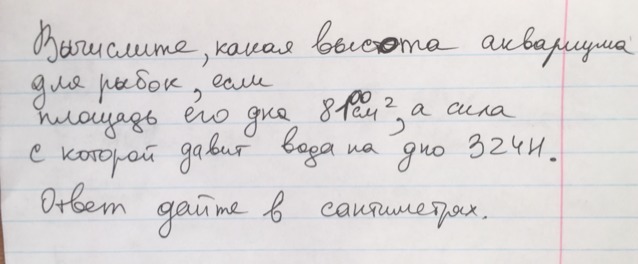 Вычислите, какая высота аквариума
для рыбок, если
площадь его дна 8100см², а сила
с которой давит вода на дно 324Н.
Ответ дайте в сантиметрах.